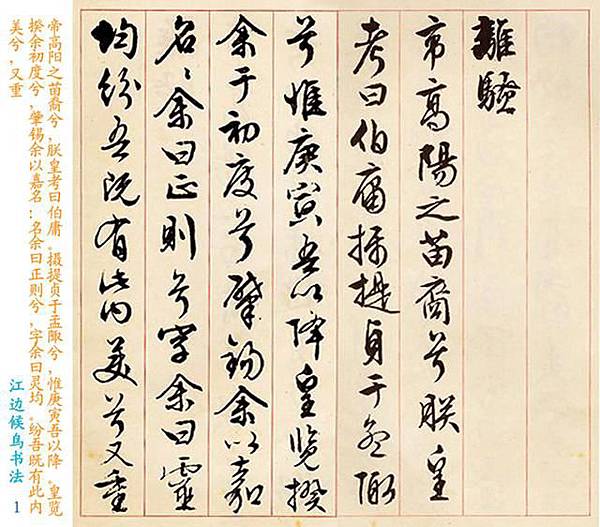 離騷
帝高陽之苗裔兮朕皇
考曰伯庸攝提貞于孟陬
兮惟庚寅吾以降皇覽揆
余于初度兮肇錫余以嘉
名〻余曰正則兮字余曰靈
均紛吾既有此內美兮又重
帝高阳之苗裔兮，朕皇考曰伯庸。摄提贞于孟陬兮，惟庚寅吾以降。皇览
揆余初度兮，肇锡余以嘉名：名余曰正则兮，字余曰灵均。纷吾既有此内
美兮，又重
江边候鸟书法 1